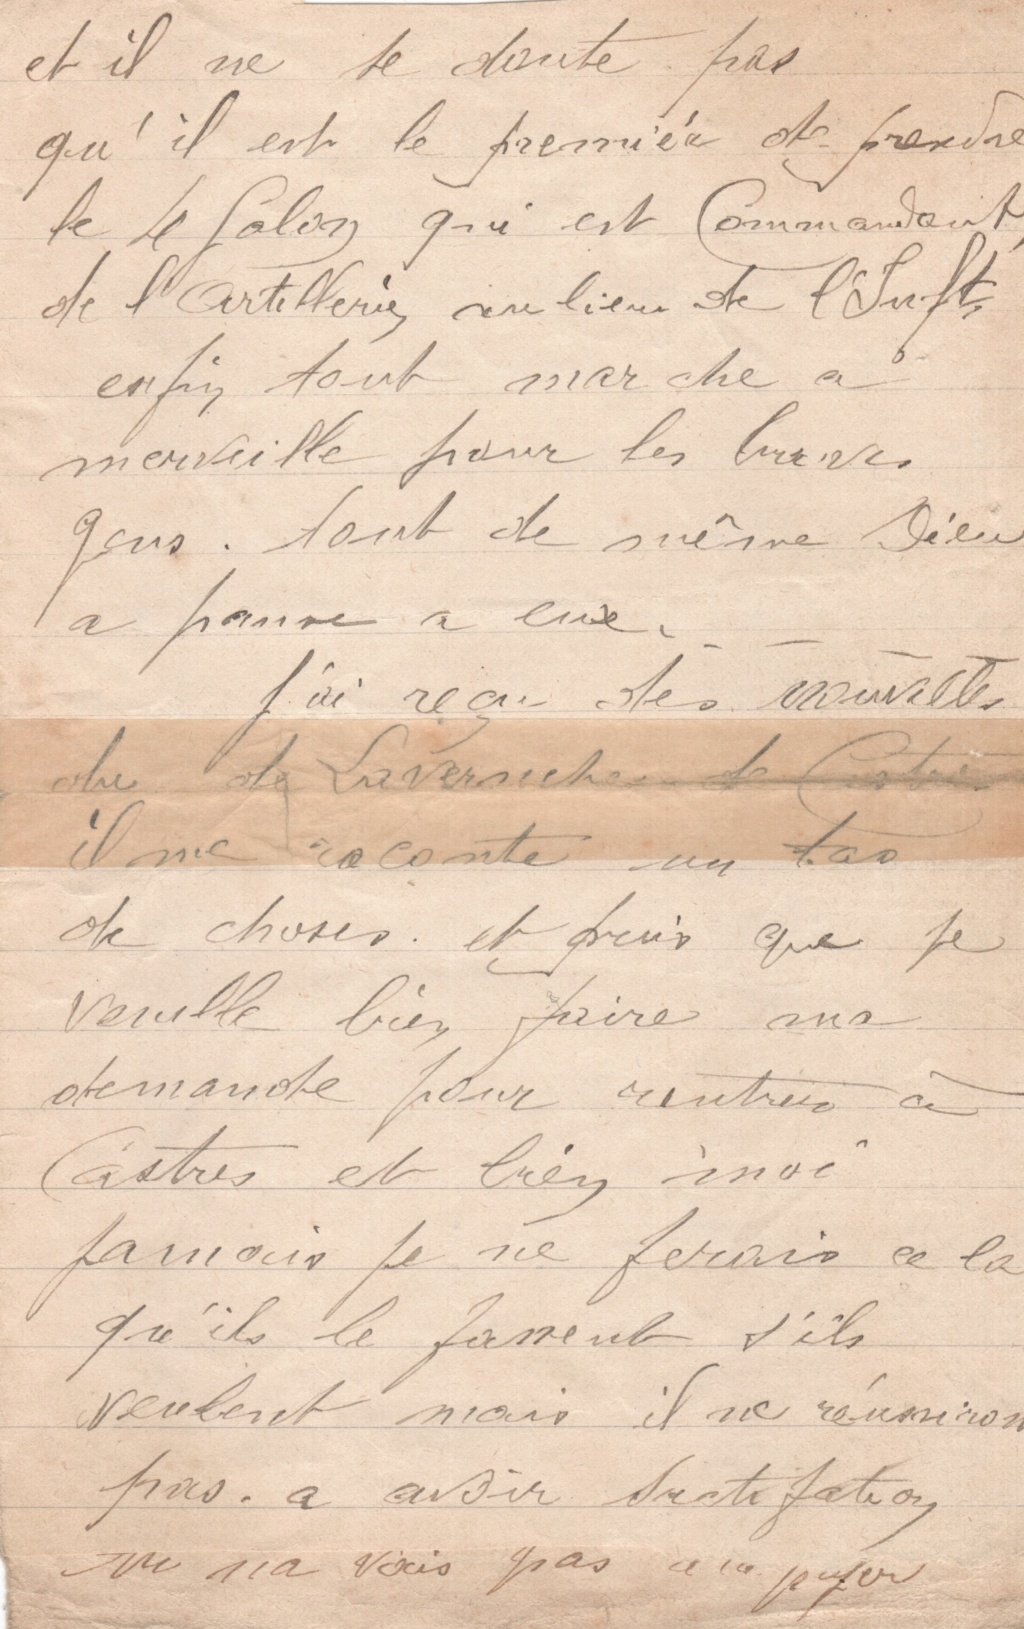 et il ne se doute pas
qu'il est le premiér de prendre
le 4e Galon qui est Commandant
de l'Artillerie au lieu de l'Inft
enfin tout marche a
merveille pour les braves
gens. tout de même Dieu
a pansé a eux.
J'ai reçu des nouvelles
du de Lavernuhe de Castres
il me raconte un tas
de choses. et puis que je
veuille bien faire ma
demande pour rentrer à
Castres et bien moi
jamais je ne ferais cela
qu'ils le fassent s'ils
veulent mais il ne réussiron
pas. a avoir satisfation
na vais pas